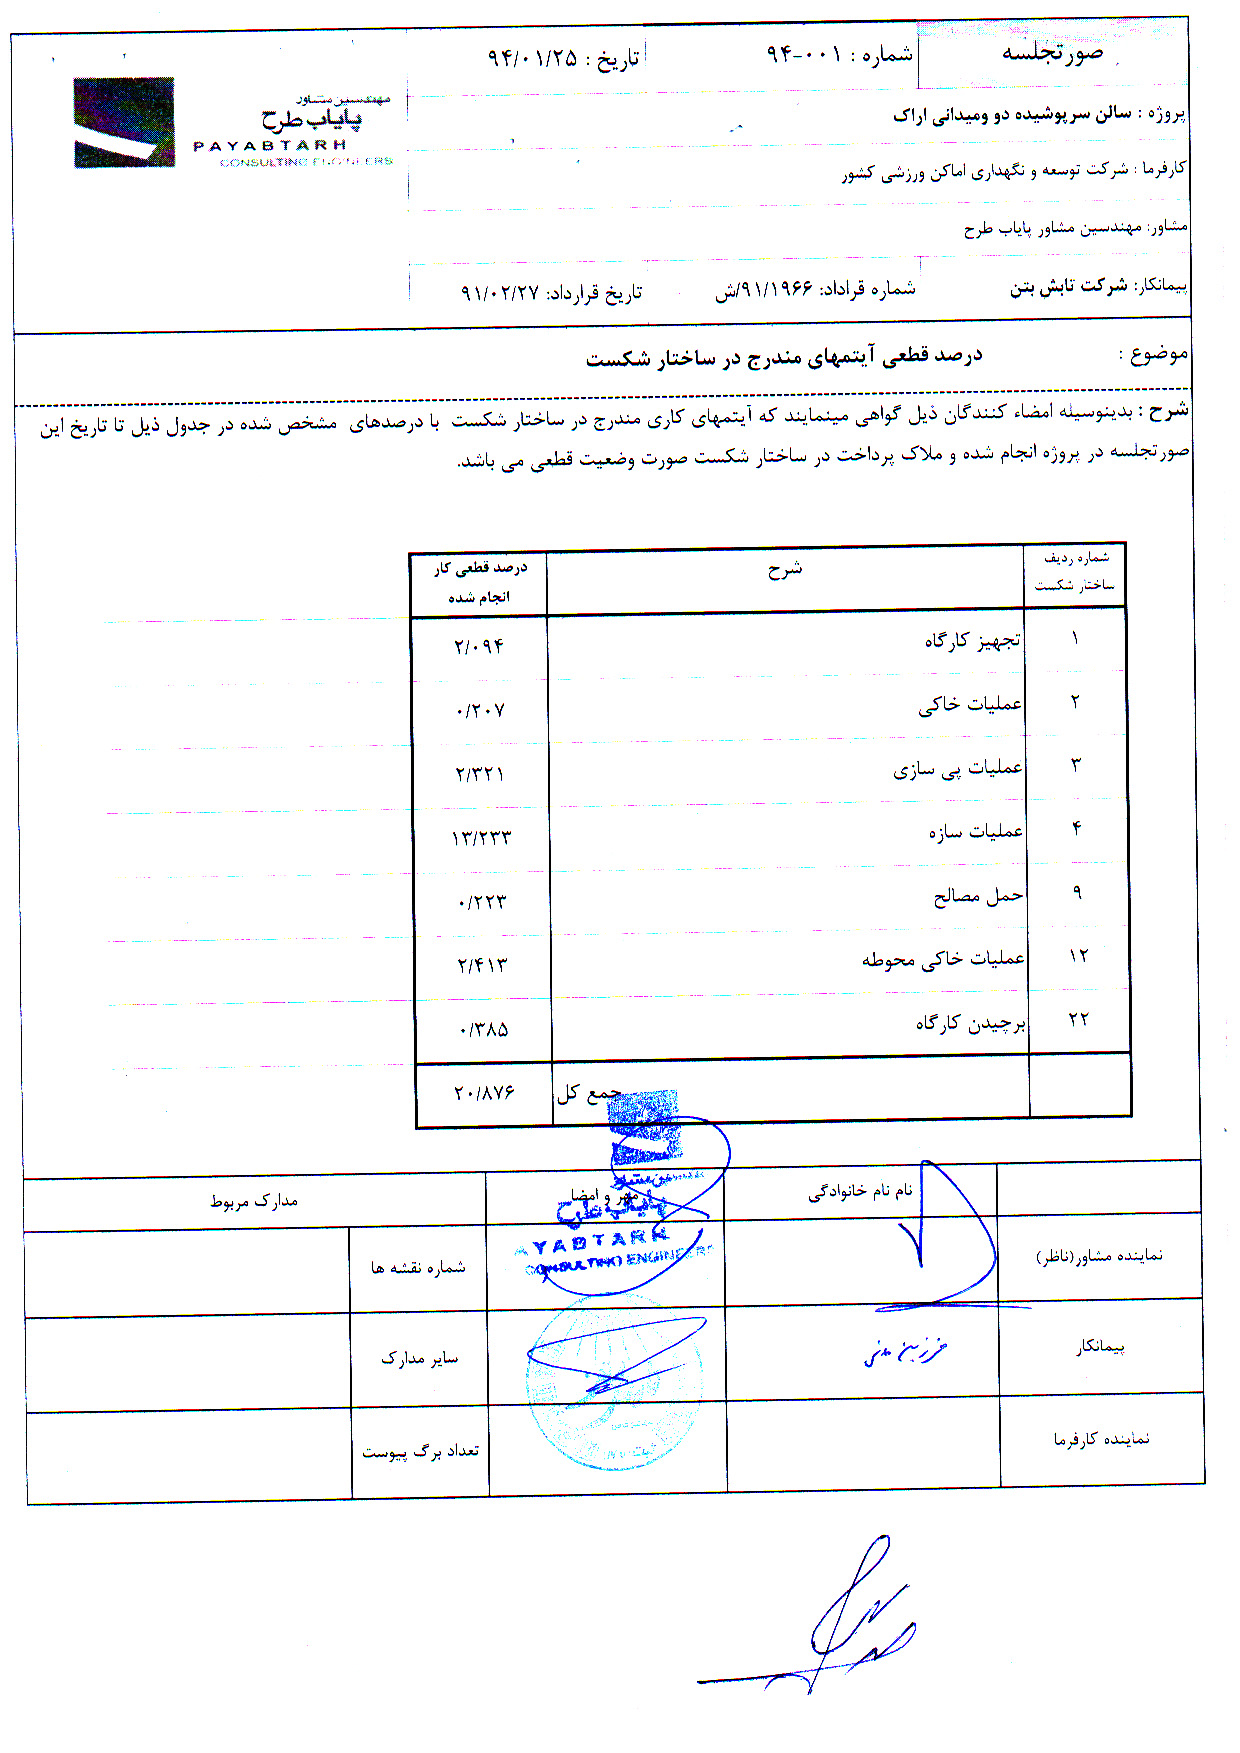 صورتجلسه
شماره : ۰۰۱-۹۴
تاریخ : ۹۴/۰۱/۲۵
مهندسین مشاور
پایاب طرح
PAYABTARH
CONSULTING ENGINEERS
پروژه : سالن سرپوشیده دو ومیدانی اراک
کارفرما : شرکت توسعه و نگهداری اماکن ورزشی کشور
مشاور: مهندسین مشاور پایاب طرح
پیمانکار: شرکت تابش بتن
شماره قراداد: ۹۱/۱۹۶۶/ش
تاریخ قرارداد: ۹۱/۰۲/۲۷
موضوع : درصد قطعی آیتمهای مندرج در ساختار شکست
شرح : بدینوسیله امضاء کنندگان ذیل گواهی مینمایند که آیتمهای کاری مندرج در ساختار شکست با درصدهای مشخص شده در جدول ذیل تا تاریخ این
صورتجلسه در پروژه انجام شده و ملاک پرداخت در ساختار شکست صورت وضعیت قطعی می باشد.
شماره ردیف ساختار شکست شرح درصد قطعی کار انجام شده
۱ تجهیز کارگاه ۲/۰۹۴
۲ عملیات خاکی ۰/۲۰۷
۳ عملیات پی سازی ۲/۳۲۱
۴ عملیات سازه ۱۳/۲۳۳
۹ حمل مصالح ۰/۲۲۳
۱۲ عملیات خاکی محوطه ۲/۴۱۳
۲۲ برچیدن کارگاه ۰/۳۸۵
جمع کل ۲۰/۸۷۶
نام نام خانوادگی مهر و امضا مدارک مربوط
پایاب طرح
AYABTARH
CONSULTING ENGINEERS
نماینده مشاور(ناظر) شماره نقشه ها
پیمانکار سایر مدارک
نماینده کارفرما تعداد برگ پیوست